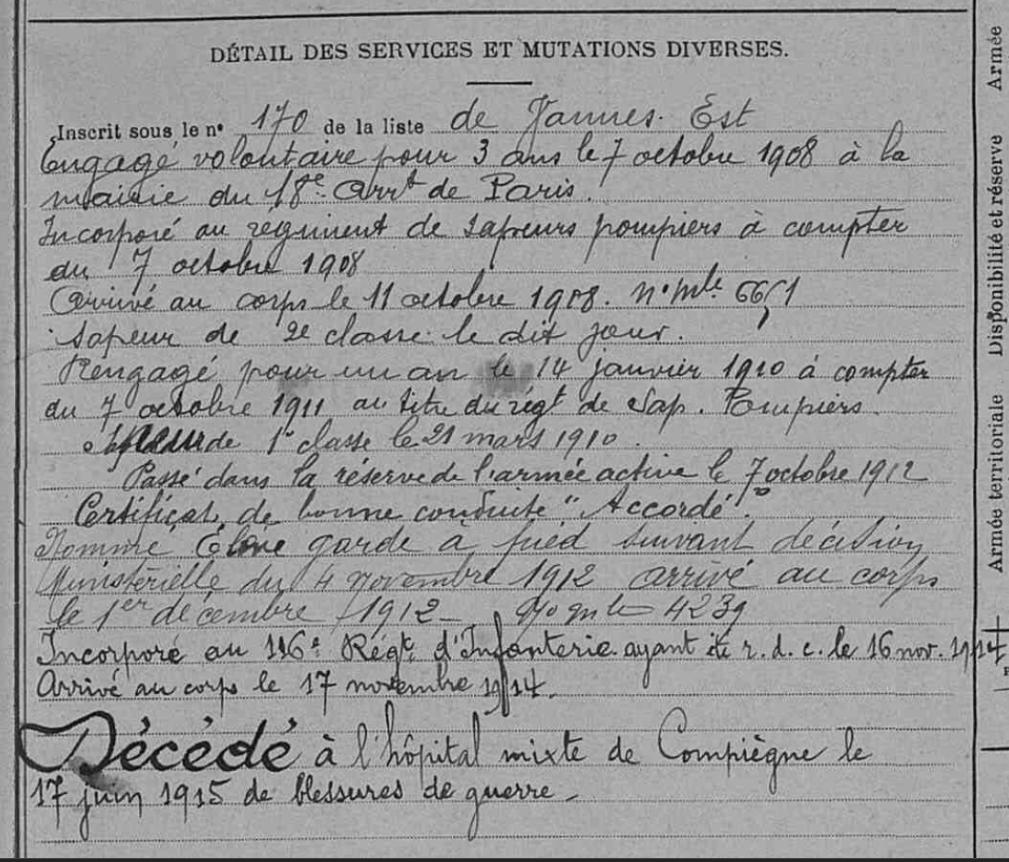 DÉTAIL DES SERVICES ET MUTATIONS DIVERSES.
Inscrit sous le n° 170 de la liste de Vannes. Est
Engagé volontaire pour 3 ans le 7 octobre 1908 à la
mairie du 18e Arrt de Paris.
Incorporé au régiment de sapeurs pompiers à compter
du 7 octobre 1908
Arrivé au corps le 11 octobre 1908. n° mle 6651
Sapeur de 2e classe le dit jour.
Rengagé pour un an le 14 janvier 1910 à compter
du 7 octobre 1911 au titre du régt de Sap. Pompiers.
Sapeur de 1e classe le 21 mars 1910.
Passé dans la réserve de l'armée active le 7 octobre 1912
Certificat de bonne conduite "Accordé".
Nommé Elève garde à pied suivant décision
Ministérielle du 4 novembre 1912 arrivé au corps
le 1er décembre 1912 - No mle 4239
Incorporé au 116e Régt d'Infanterie ayant été r. d. c. le 16 nov. 1914
Arrivé au corps le 17 novembre 1914.
Décédé à l'hôpital mixte de Compiègne le
17 juin 1915 de blessures de guerre -
Armée territoriale Disponibilité et réserve Armée